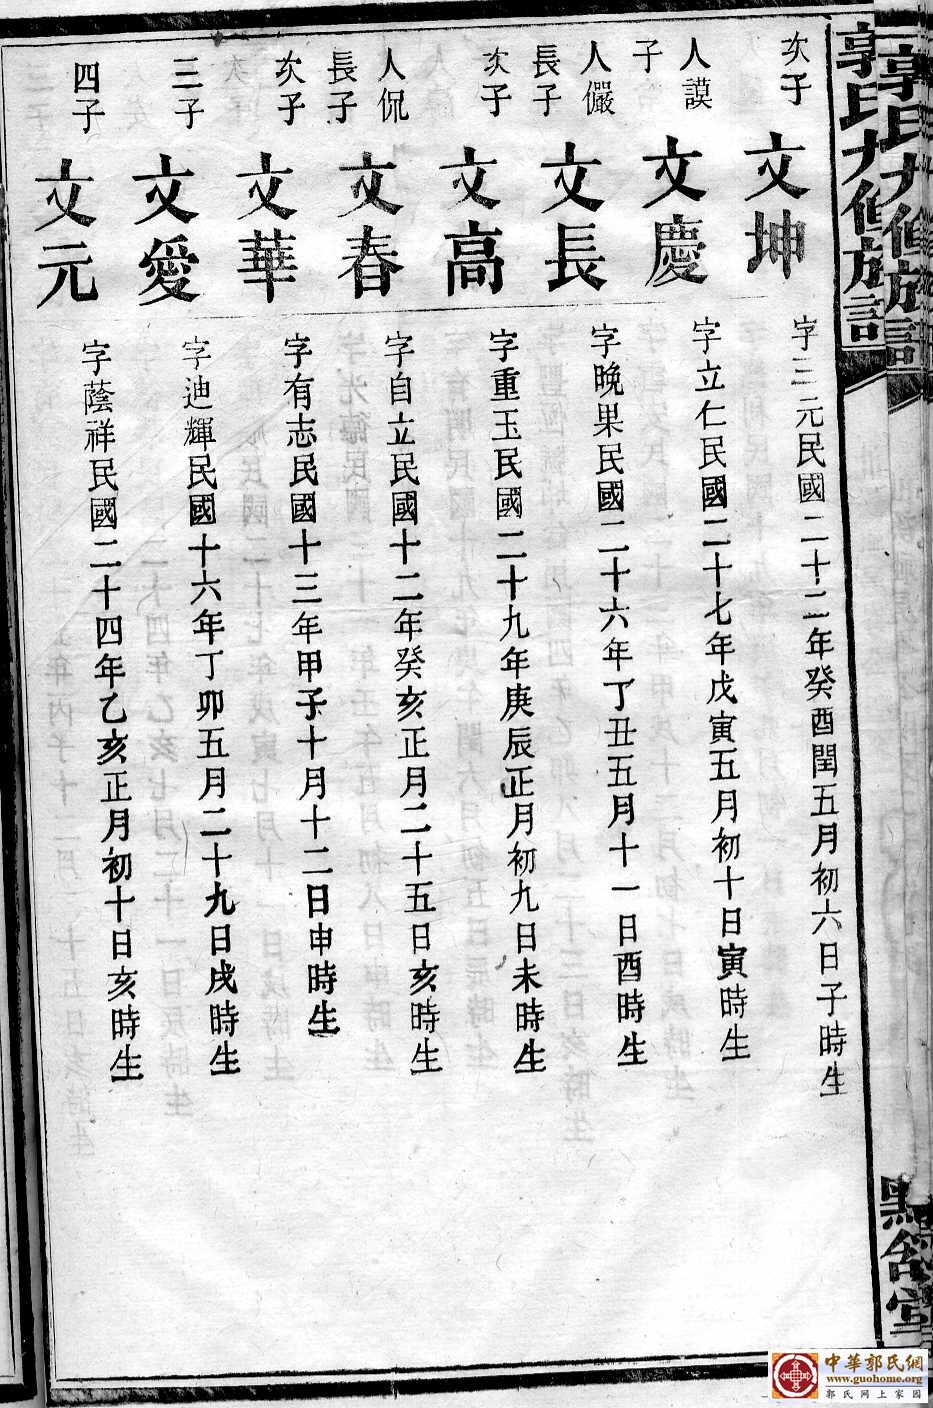 郭氏九修族譜
次子
文坤
字三元民國二十二年癸酉閏五月初六日子時生
人謨
子
文慶
字立仁民國二十七年戊寅五月初十日寅時生
人儼
長子
文長
字晚果民國二十六年丁丑五月十一日酉時生
次子
文高
字重玉民國二十九年庚辰正月初九日未時生
人侃
長子
文春
字自立民國十二年癸亥正月二十五日亥時生
次子
文華
字有志民國十三年甲子十月十二日申時生
三子
文愛
字迪輝民國十六年丁卯五月二十九日戌時生
四子
文元
字蔭祥民國二十四年乙亥正月初十日亥時生
中華郭氏網
www.guohome.org
郭氏网上家园